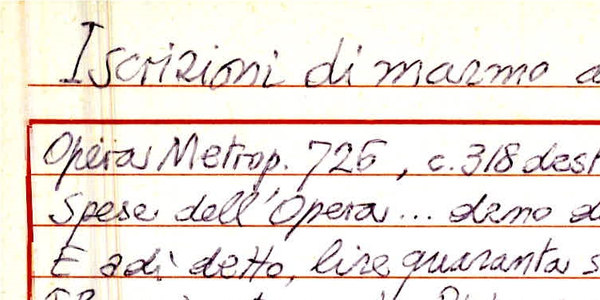 Iscrizioni di marmo a
Opera Metrop. 726, c. 318 dest
Spese dell'Opera... demo d
E adì detto, lire quaranta s